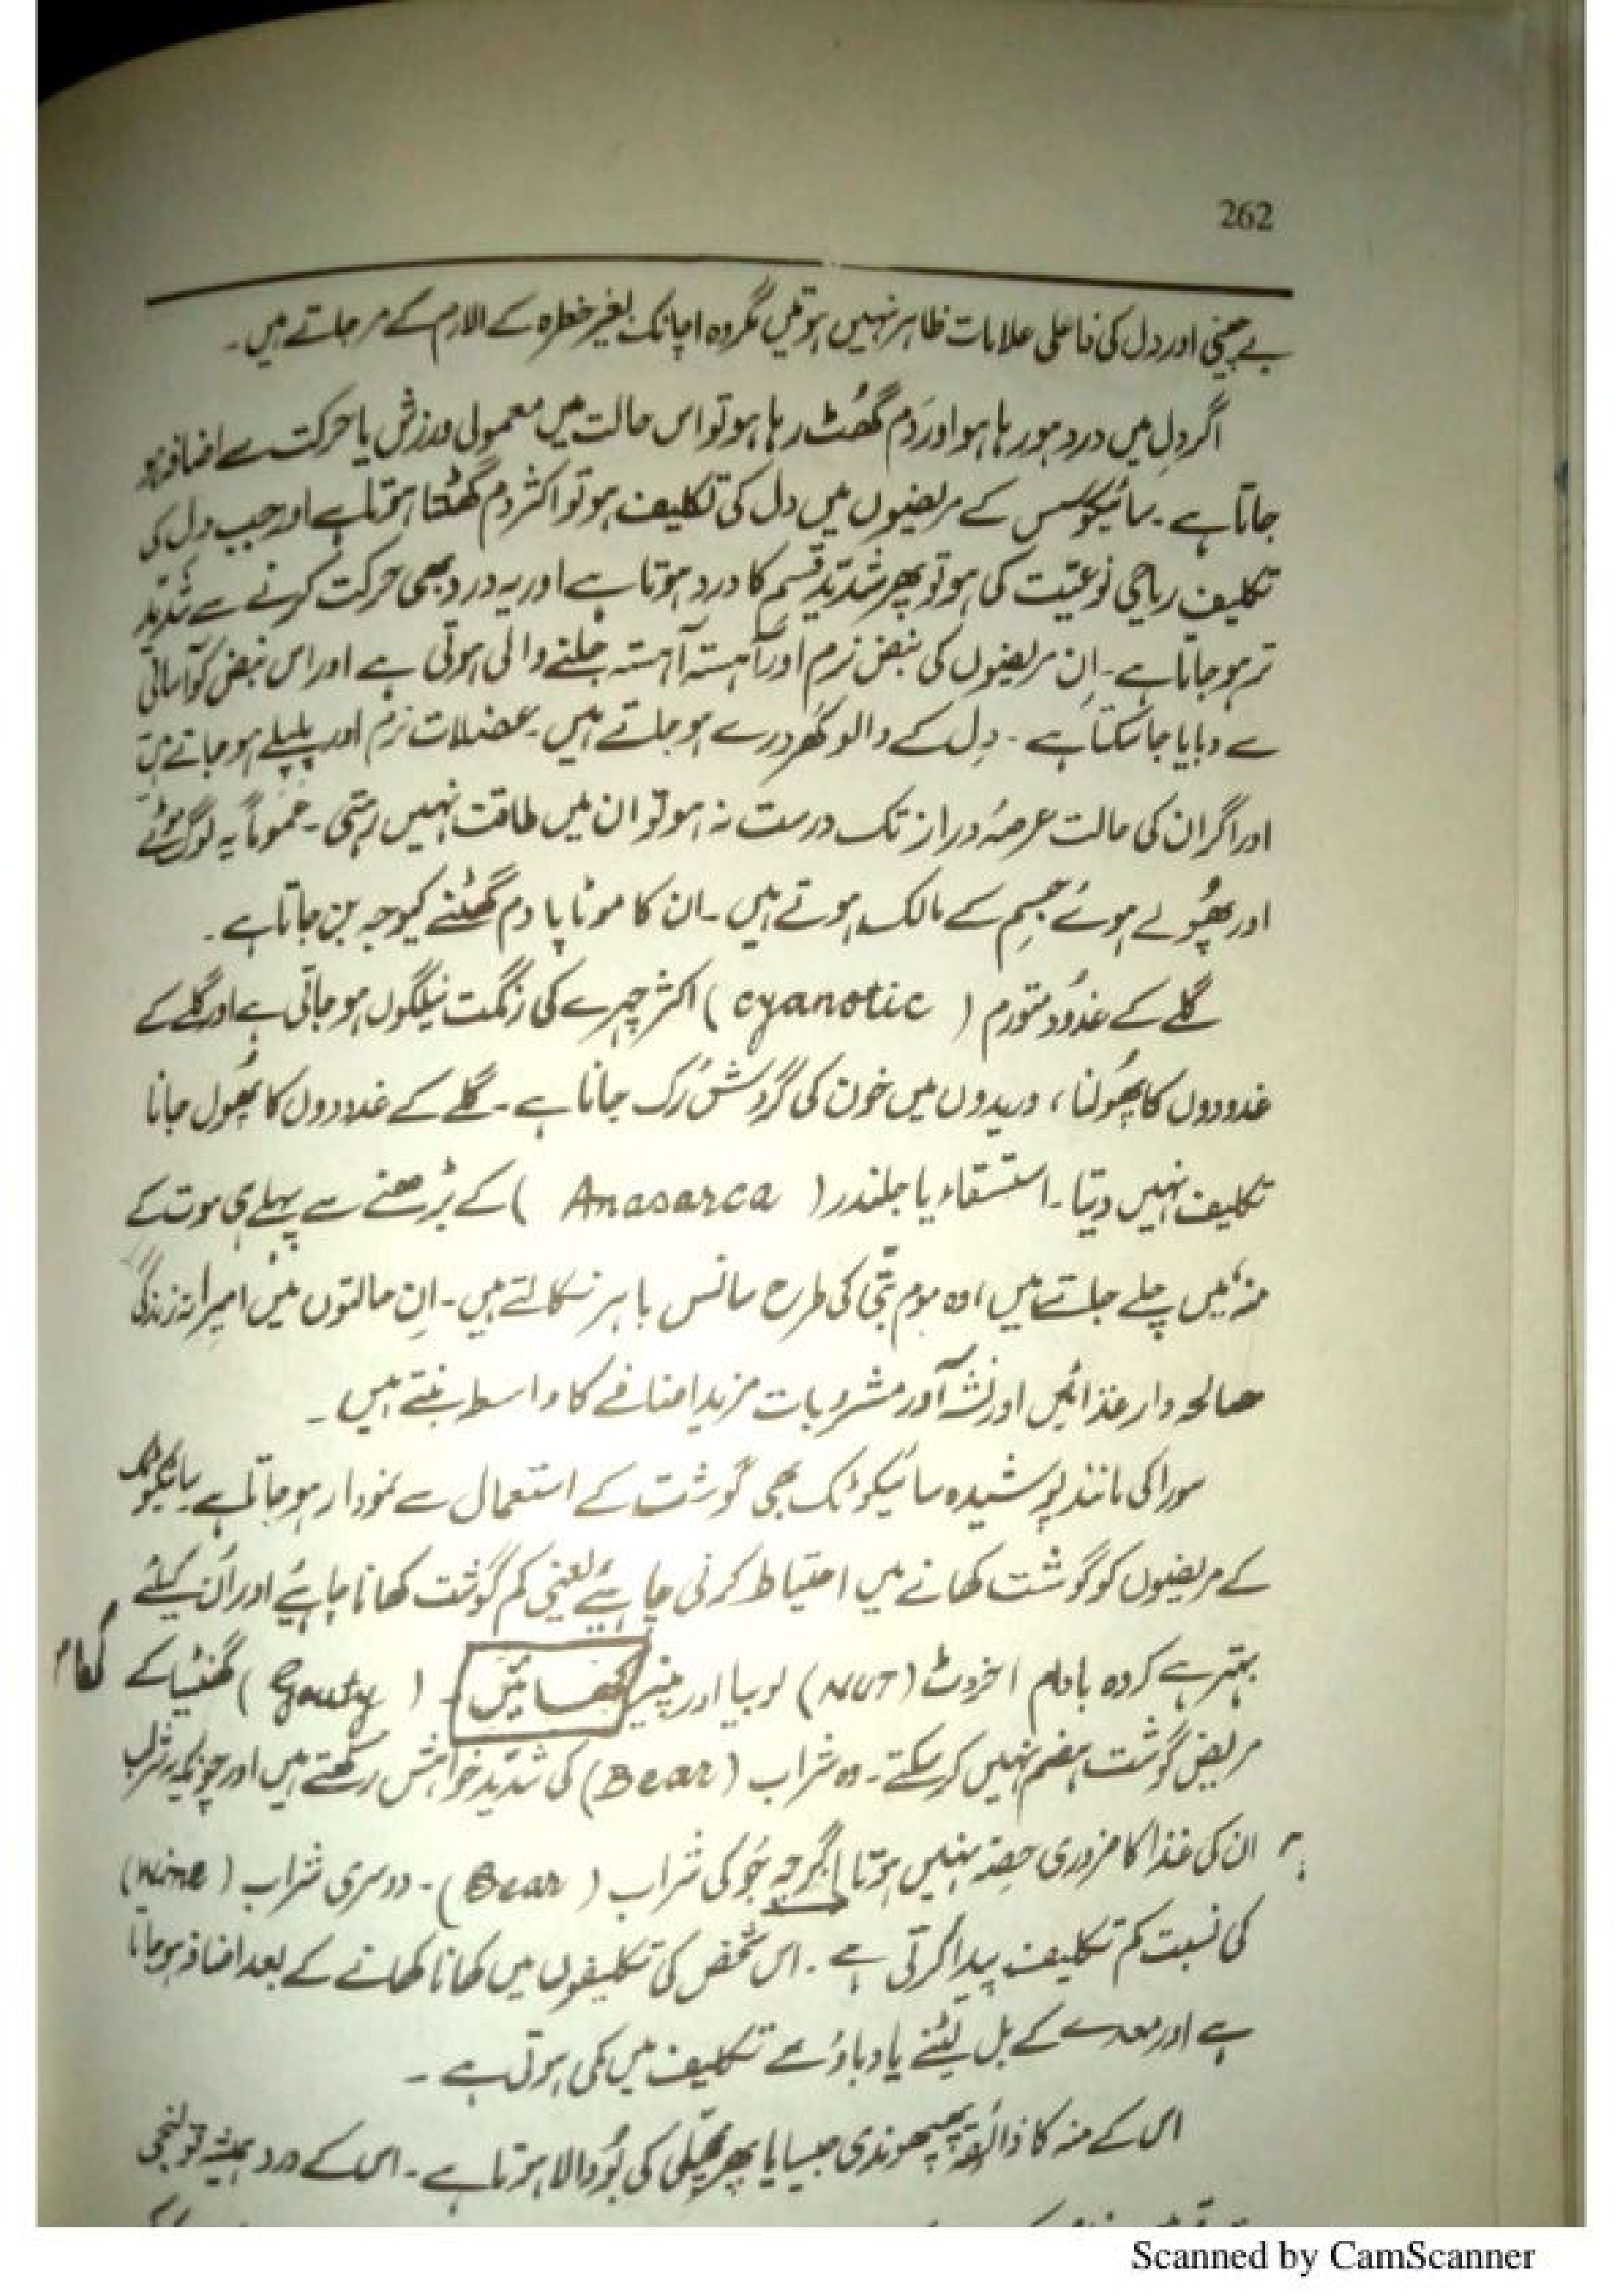 262
بے چینی اور دل کی فاعلی علامات ظاہر نہیں ہوتیں مگر وہ اچانک بغیر خطرہ کے الارم کے مر جاتے ہیں۔
اگر دِل میں درد ہو رہا ہو اور دَم گھُٹ رہا ہو تو اس حالت میں معمولی ورزش یا حرکت سے اضافہ ہو
جاتا ہے۔ سائیکوسس کے مریضوں میں دل کی تکلیف ہو تو اکثر دم گھٹتا ہوتا ہے اور جب دِل کی
تکلیف ریاحی نوعیّت کی ہو تو پھر شدید قسم کا درد ہوتا ہے اور یہ درد بھی حرکت کرنے سے شدید
تر ہو جاتا ہے۔ اِن مریضوں کی نبض نرم اور آہستہ آہستہ چلنے والی ہوتی ہے اور اس نبض کو آسانی
سے دبایا جا سکتا ہے۔ دِل کے والو کھُردرے ہو جاتے ہیں۔ عضلات نرم اور پلپلے ہو جاتے ہیں
اور اگر ان کی حالت عرصۂ دراز تک درست نہ ہو تو ان میں طاقت نہیں رہتی۔ عموماً یہ لوگ موٹے
اور پھُولے ہوئے جسِم کے مالک ہوتے ہیں۔ ان کا موٹاپا دم گھٹنے کیوجہ بن جاتا ہے۔
گلے کے غدُود متورم ( cyanotic ) اکثر چہرے کی رنگت نیلگوں ہو جاتی ہے اور گلے کے
غدودوں کا پھُولنا، وریدوں میں خون کی گردش رُک جانا ہے۔ گلے کے غدودوں کا پھُول جانا
تکلیف نہیں دیتا۔ استسقاء یا جلندر ( Anasarca ) کے بڑھنے سے پہلے ہی موت کے
منہ میں چلے جاتے ہیں، وہ موم بتّی کی طرح سانس باہر نکالتے ہیں۔ اِن حالتوں میں امیرانہ زندگی
مصالحہ دار غذائیں اور نشہ آور مشروبات مزید اضافے کا واسطہ بنتے ہیں۔
سورا کی مانند پوشیدہ سائیکوٹک بھی گوشت کے استعمال سے نمودار ہو جاتا ہے سائیکوٹک
کے مریضوں کو گوشت کھانے میں احتیاط کرنی چاہیئے یعنی کم گوشت کھانا چاہیئے اور اُن کیلئے
بہتر ہے کہ وہ بادام اخروٹ (NUT) لوبیا اور پنیر کھائیں۔ ( Gouty ) گنٹھیا کے
مریض گوشت ہضم نہیں کر سکتے۔ وہ شراب (Bear) کی شدید خواہش رکھتے ہیں اور چونکہ یہ شراب
ان کی غذا کا ضروری حصّہ نہیں ہوتا اگرچہ جَو کی شراب ( Bear )۔ دوسری شراب ( Wine )
کی نسبت کم تکلیف پیدا کرتی ہے۔ اس شخص کی تکلیفوں میں کھانا کھانے کے بعد اضافہ ہو جاتا
ہے اور معدے کے بل لیٹنے یا دباؤ سے تکلیف میں کمی ہوتی ہے۔
اس کے منہ کا ذائقہ پھپھوندی جیسا یا پھر مچھلی کی بُو والا ہوتا ہے۔ اس کے درد ہمیشہ قولنجی
Scanned by CamScanner